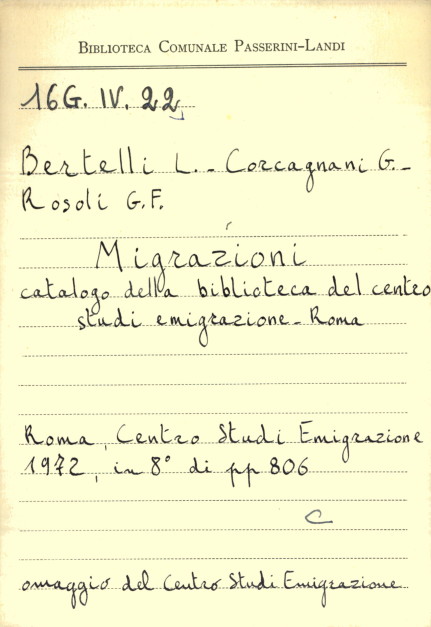 BIBLIOTECA COMUNALE PASSERINI-LANDI
16G. IV. 22
Bertelli L. - Corcagnani G. -
Rosoli G.F.
Migrazioni
catalogo della biblioteca del centro
studi emigrazione - Roma
Roma, Centro Studi Emigrazione
1972, in 8° di pp 806
C
omaggio del Centro Studi Emigrazione